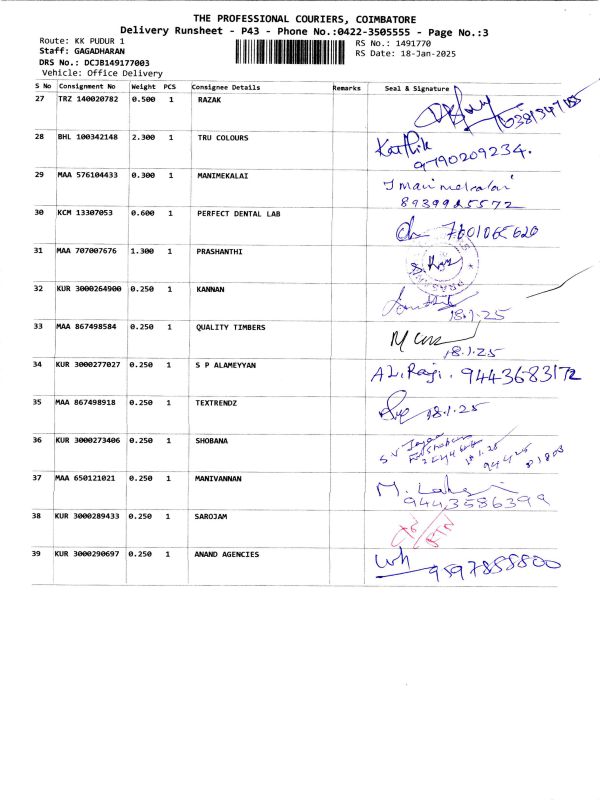 THE PROFESSIONAL COURIERS, COIMBATORE
Delivery Runsheet - P43 - Phone No.:0422-3505555 - Page No.:3
Route: KK PUDUR 1
RS No.: 1491770
Staff: GAGADHARAN
RS Date: 18-Jan-2025
DRS No.: DCJB149177003
Vehicle: Office Delivery
S No Consignment No Weight PCS Consignee Details Remarks Seal & Signature
27 TRZ 140020782 0.500 1 RAZAK
28 BHL 100342148 2.300 1 TRU COLOURS Karthik
9790209234.
29 MAA 576104433 0.300 1 MANIMEKALAI
8939925572
30 KCM 13307053 0.600 1 PERFECT DENTAL LAB 7601065620
31 MAA 707007676 1.300 1 PRASHANTHI
32 KUR 3000264900 0.250 1 KANNAN
18.1.25
33 MAA 867498584 0.250 1 QUALITY TIMBERS
18.1.25
34 KUR 3000277027 0.250 1 S P ALAMEYYAN 9443683172
35 MAA 867498918 0.250 1 TEXTRENDZ 18.1.25
36 KUR 3000273406 0.250 1 SHOBANA
18.1.25
37 MAA 650121021 0.250 1 MANIVANNAN
9443586399
38 KUR 3000289433 0.250 1 SAROJAM RTN
39 KUR 3000290697 0.250 1 ANAND AGENCIES
9597855800